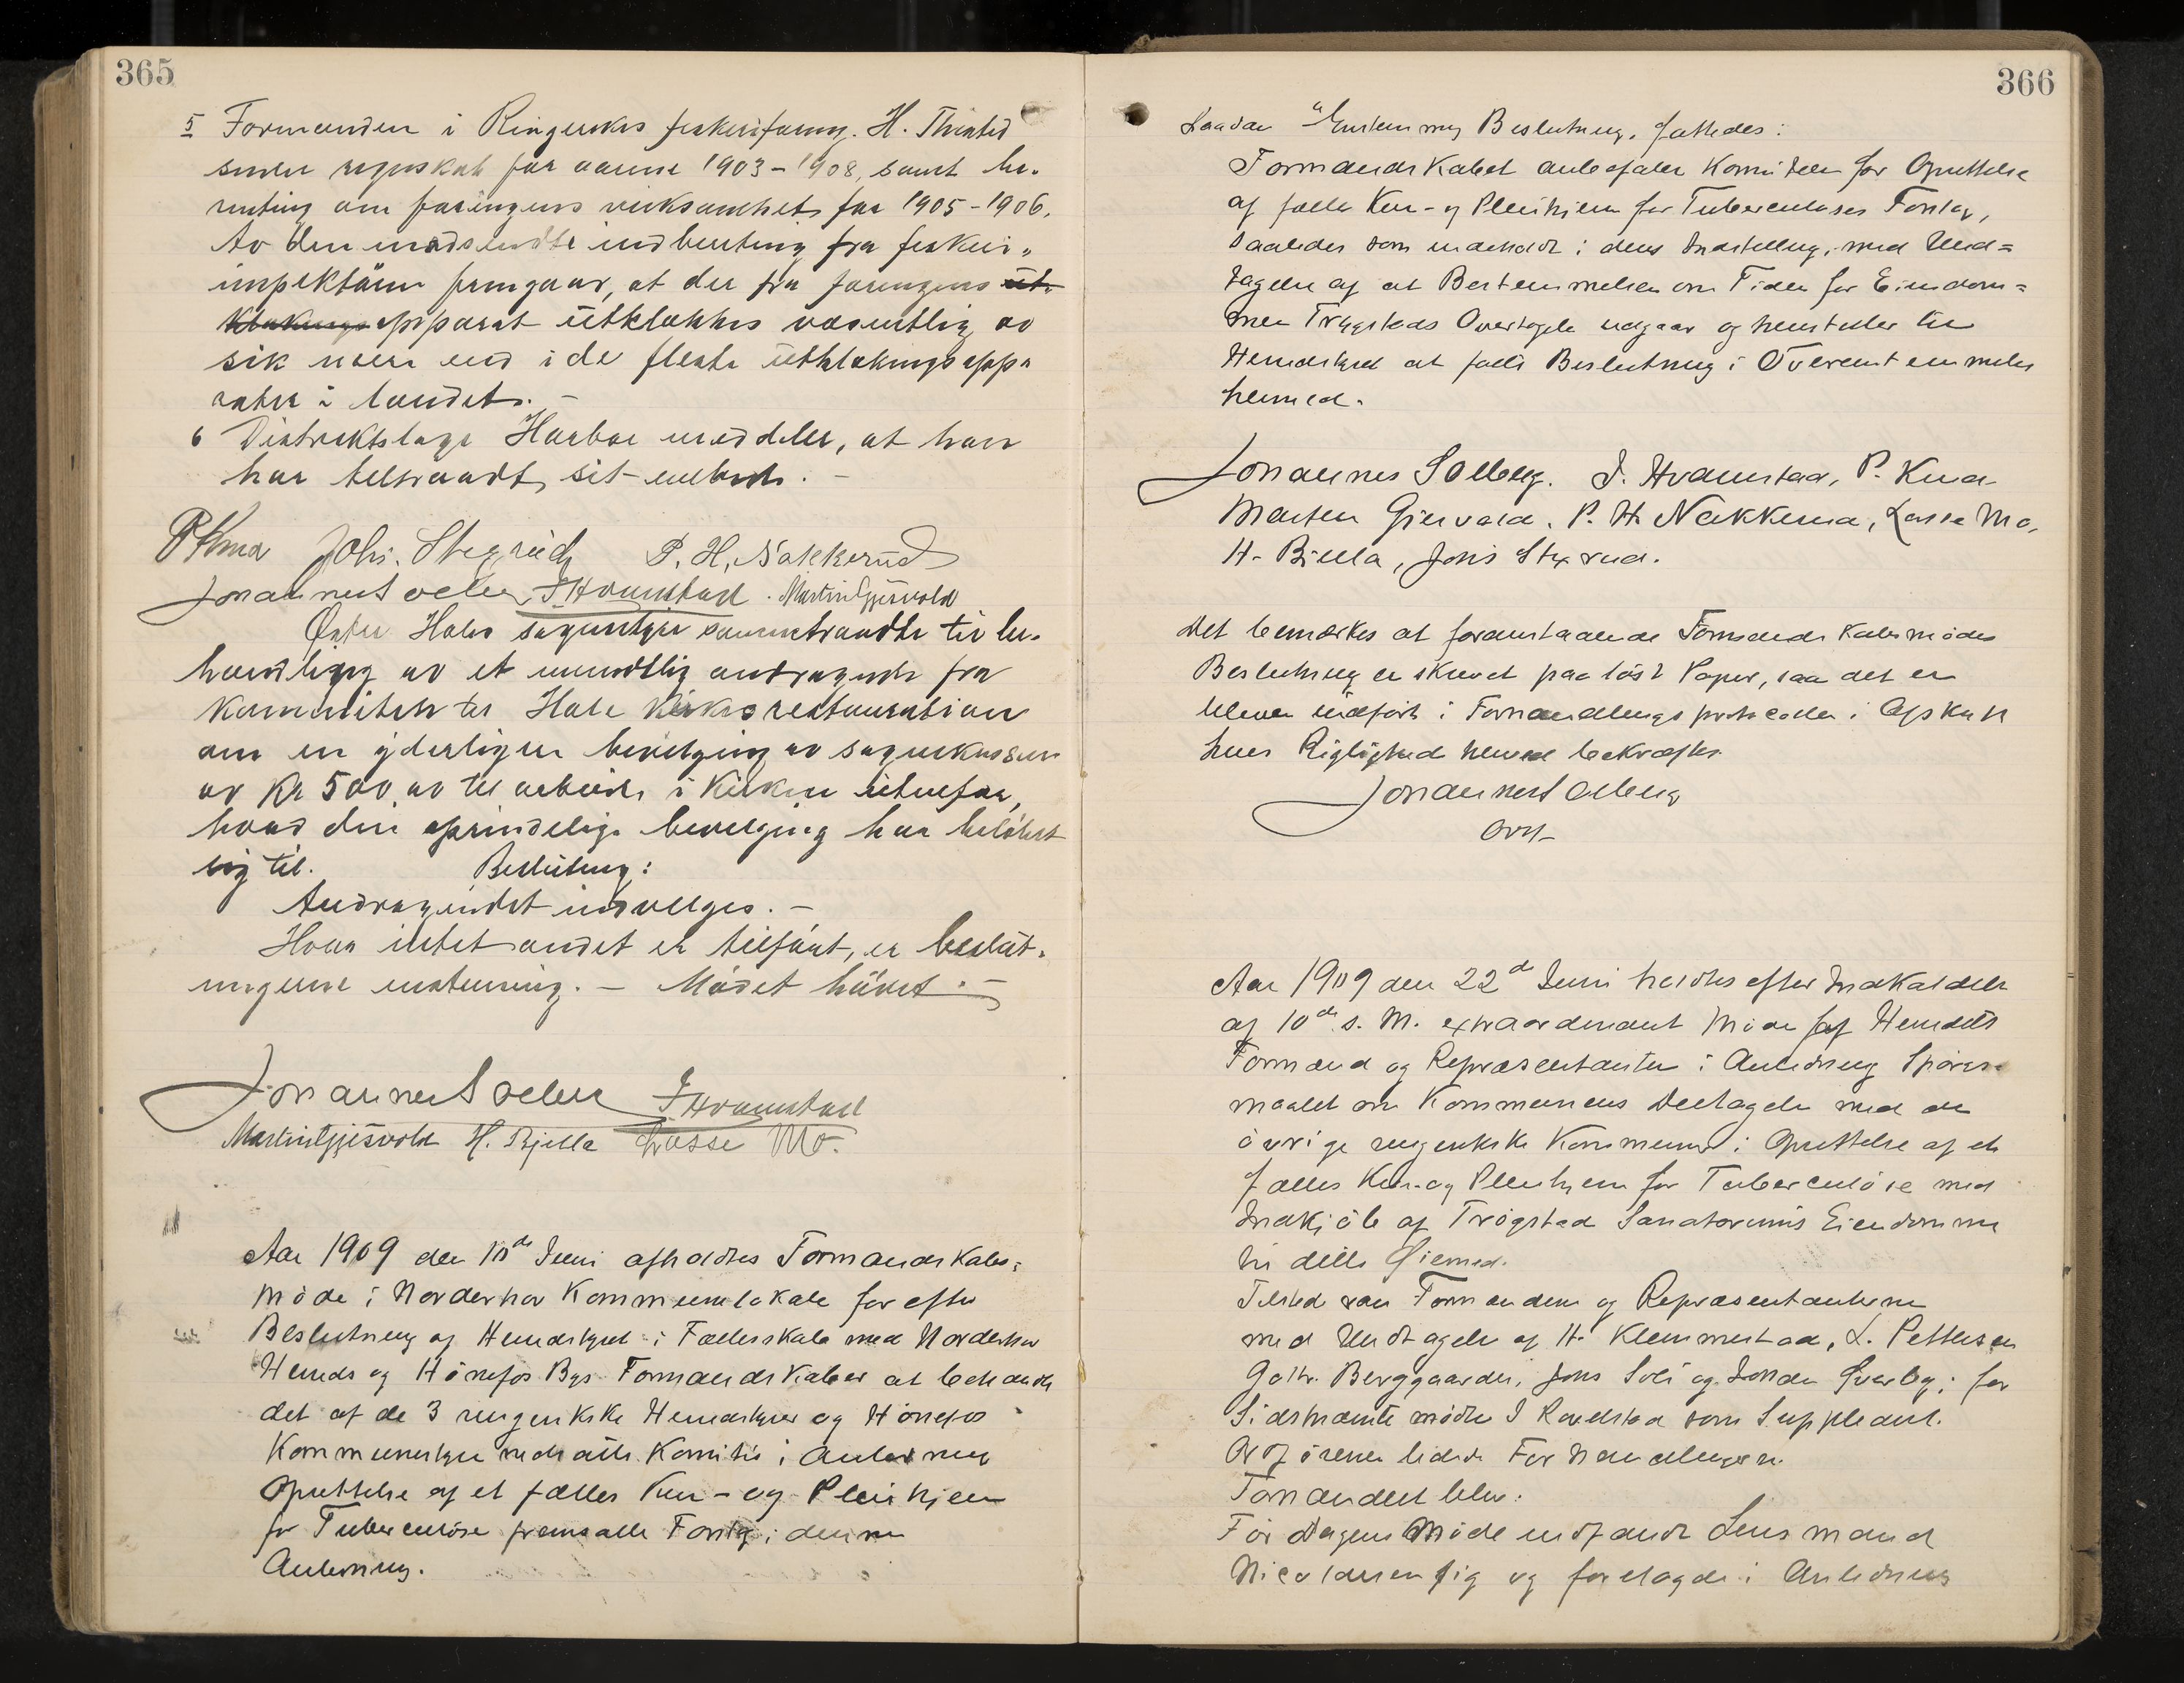 365
5 Formanden i Ringerikes fiskeriforening. H. Thinsted
sender regnskab for aarene 1903-1908, samt be-
retning om foreningens virksomhet for 1905-1906.
Av den medsendte indberetning fra fiskeri-
inspektören fremgaar, at der fra foreningens ut-
klæknings apparat utklækkes væsentlig av
sik mere end i de fleste utklækningsappa
rater i landet. -
6 Distriktslæge Harboe meddeler, at han
har tiltraadt sit embede. -
P Kna Johs. Stegerud P. H. Nakkerud
Johannes Solberg J Hvamstad. Martin Gjesvold
Under Holes sogne styre sammentraadte til be-
handling av et mundtlig andragende fra
komiteen for Hole kirkes restauration
om en yderligere bevilgning av sognekassen
av Kr 500,00 til arbeide i kirken utenfor,
hvad den oprindelige bevilgning har belöbet
sig til. Beslutning:
Andragendet indvilges. -
Hvor intet andet er tilfört, er beslut-
ningerne enstemmig. - Mödet hævet. -
Johannes Solberg J Hvamstad
Martin Gjesvold H. Bjella Lasse Mo.
Aar 1909 den 10de Juni afholdtes Formandskabs-
möde i Norderhov Kommunelokale for efter
Beslutning af Herredstyret i Fællesskab med Norderhov
Herreds og Hönefos Bys Formandskaber at behandle
det af de 3 ringerikske Herredstyrer og Hönefos
Kommunestyre nedsatte Komites i Anledning
Oprettelse af et fælles Kur- og Pleiehjem
for Tuberculöse fremsatte Forslag i denne
Anledning.
366
Saadan Enstemmig Beslutning fattedes:
Formandskabet anbefaler Komiteens for Oprettelse
af fælles Kur- og Pleiehjem for Tuberculoses Forslag,
saaledes som indeholdt i dens Indstilling, med Und=
tagelse af at Bestemmelsen om Tiden for Eiendom=
mer Trygstads Overtagelse udgaar og henstiller til
Herredstyret at fatte Beslutning i Overenstemmelse
hermed.
Johannes Solberg. J. Hvamstad, P. Kna
Marten Gjesvold, P. H. Nakkerud, Lasse Mo,
H. Bjella, Johs Stegerud.
Det bemærkes at foranstaaende Formandskabsmödes
Beslutning er skrevet paa löst Papir, saa det er
bleven indfört i Forhandlingsprotocollen i Afskrift
hvis Rigtighed herved bekræftes.
Johannes Solberg
Ordf
Aar 1909 den 22d Juni holdtes efter Indkaldelse
af 10de s. M. extraordinært Möde af Herredets
Formænd og Repræsentanter i Anledning Spörgs-
maalet om Kommunens Deltagelse med de
övrige ringerikske Kommuner i Oprettelse af et
fælles Kur- og Pleiehjem for Tuberculöse med
Indkjöb af Trögstad Sanatoriums Eiendomme
til dette Öiemed.
Tilstede var Formændene og Repræsentanterne
med Undtagelse af H. Klemmetstad, L. Pettersen
Gotr. Berggaarden, Johs Soli og Sverby; for
Sidstnævnte mödte J Rordstad som Suppleant.
Ordföreren ledede Forhandlingerne.
Foranderet blev:
För Dagens Möde indfandt Lensmand
Nicolaisen sig og foretagde i Anledning